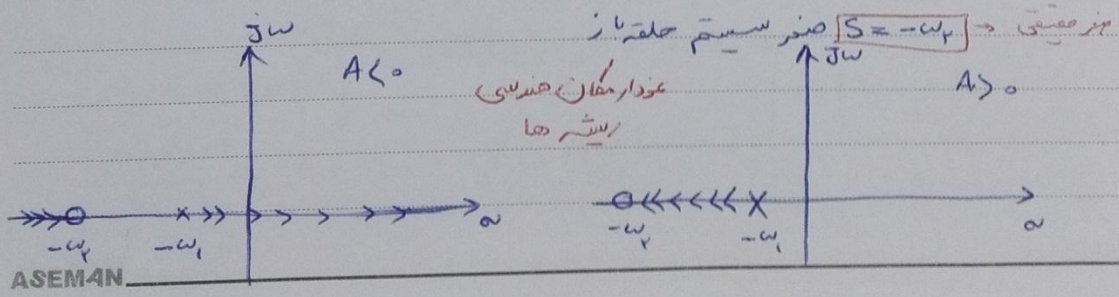 صفر سیستم حلقه باز S = -ω₂ → صفر حقیقی
jω
jω
A < ۰
نمودار مکان هندسی
ریشه ها
A > ۰
σ
σ
-ω₂
-ω₁
-ω₂
-ω₁
ASEMAN